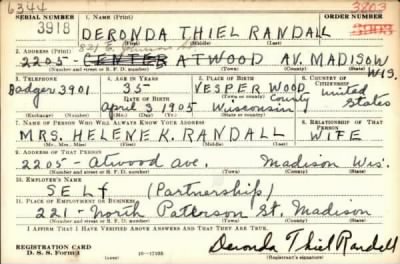 6344
SERIAL NUMBER 1. NAME (Print) ORDER NUMBER
3918 DERONDA THIEL RANDALL 3203
(First) (Middle) (Last)
2. ADDRESS (Print) 821 E. Johnson St.
2205- CENTER ATWOOD AV. MADISON WIS.
(Number and street or R. F. D. number) (Town) (County) (State)
3. TELEPHONE 4. AGE IN YEARS 5. PLACE OF BIRTH 6. COUNTRY OF CITIZENSHIP
Badger 3901 35 VESPER WOOD County United States
DATE OF BIRTH
April 3 1905 Wisconsin
(Exchange) (Number) (Mo.) (Day) (Yr.) (State or country)
7. NAME OF PERSON WHO WILL ALWAYS KNOW YOUR ADDRESS 8. RELATIONSHIP OF THAT PERSON
MRS. HELENE K. RANDALL WIFE
(Mr., Mrs., Miss) (First) (Middle) (Last)
9. ADDRESS OF THAT PERSON
2205- Atwood Ave. Madison Wis.
(Number and street or R. F. D. number) (Town) (County) (State)
10. EMPLOYER'S NAME
SELf (Partnership)
11. PLACE OF EMPLOYMENT OR BUSINESS
221- North Paterson St. Madison
(Number and street or R. F. D. number) (Town) (County) (State)
I AFFIRM THAT I HAVE VERIFIED ABOVE ANSWERS AND THAT THEY ARE TRUE.
REGISTRATION CARD
D. S. S. Form 1 Deronda Thiel Randall
(Registrant's signature)